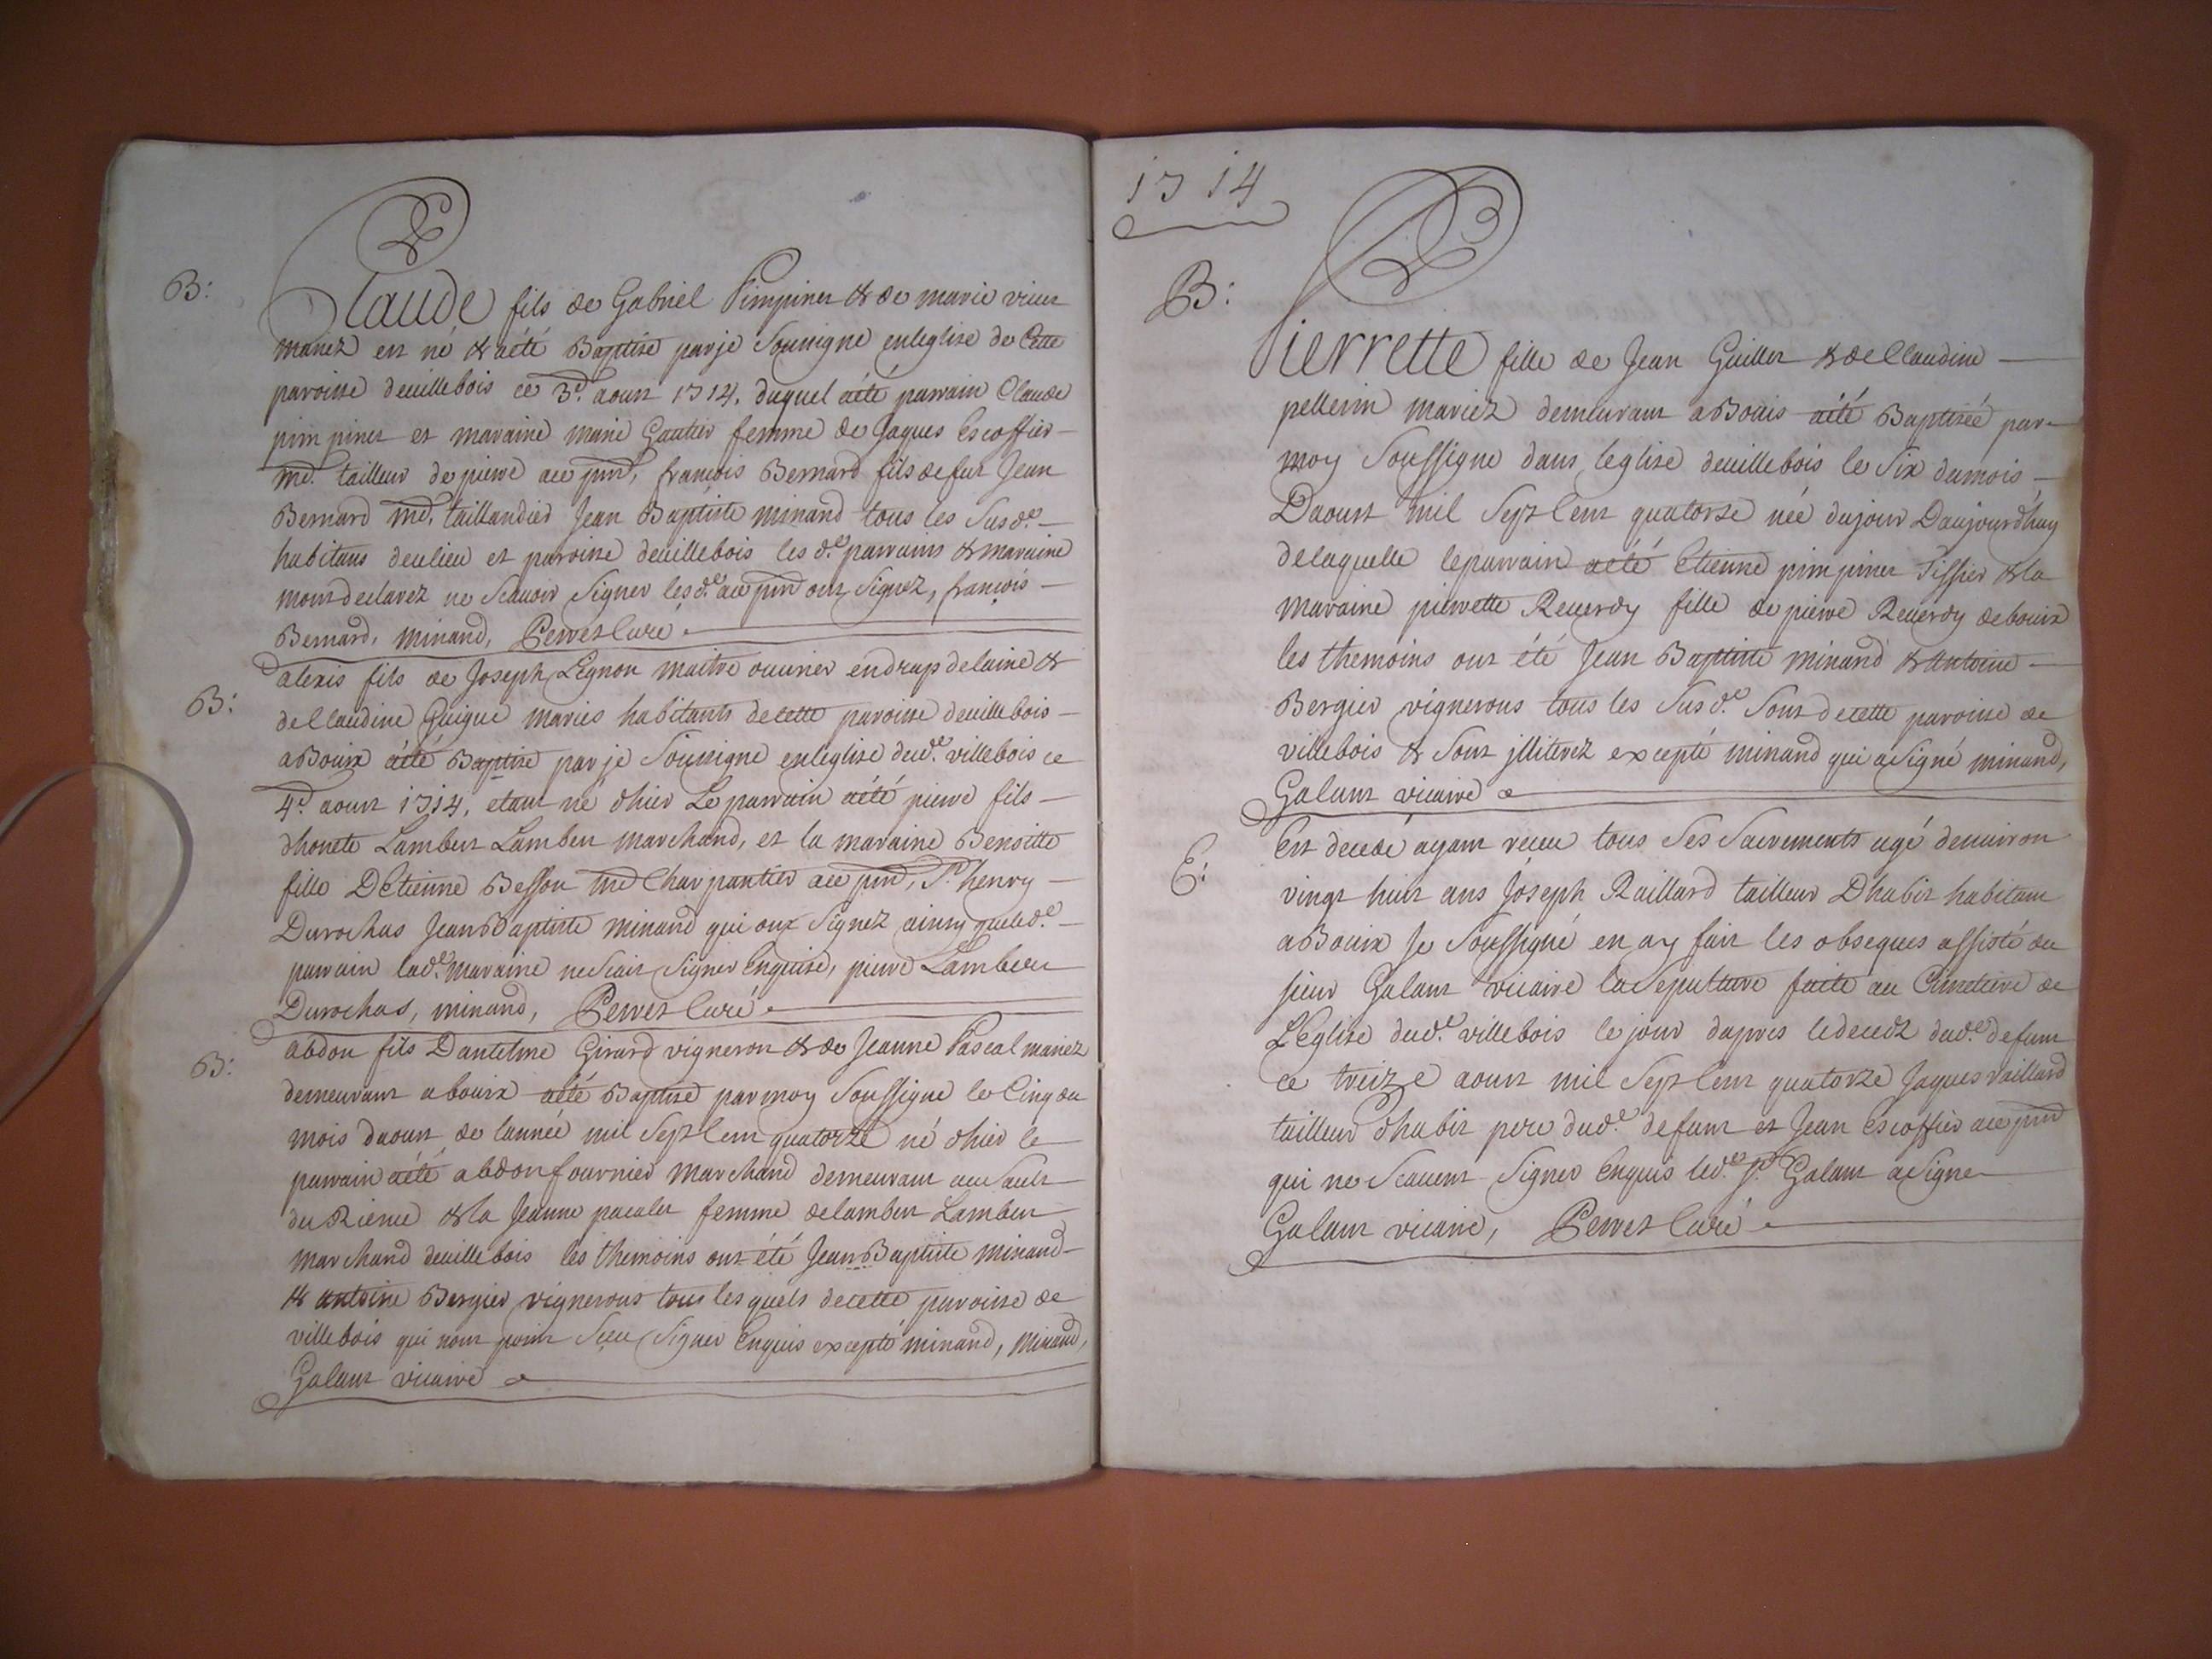 B:
Claude fils de Gabriel Pimpinet & de marie vieur
mariez est né & aété Baptisé par je Soussigné enleglise de Cette
paroisse deuillebois ce 3e. aoust 1714. duquel aété parrain Claude
pimpinet et maraine marie Gautier femme de Jaques Escoffier
md. tailleur de pierre ace pnd, francois Bernard fils defut Jean
Bernard md. taillandier Jean Baptiste minand tous les Susd.e
habitans deulieu et paroisse deuillebois les d.e parrains & maraine
mont declarez ne Scauoir Signer les d.e ace pnd ont Signez, francois
Bernard, minand, Perret Curé
B:
alexis fils de Joseph Lignon maitre ouurier endrap delaine &
deClaudine Guigue maries habitants decette paroisse deuillebois
aBouix aété Baptisé par je Soussigné enleglise dud.e villebois ce
4e. aoust 1714, etant né dhier Le parrain aété pierre fils
dhonete Lambert Lambert marchand, et la maraine Benoitte
fille DEtienne Besson md Charpantier ace pnd, Sr. henry
Durochas Jean Baptiste minand qui ont Signez ainsy queled.e
parrain lad.e maraine neScait Signer Enquise, pierre Lambert
Durochas, minand, Perret Curé
B:
abdon fils Dantelme Girard vigneron & de Jeanne Pascal mariez
demeurant abouix aété Baptisé par moy Soussigné le Cinq du
mois daoust de lannée mil Sept Cent quatorze né dhier le
parrain aété abdon fournier marchand demeurant au Sault
du Rième & la Jeanne pacalet femme delambert Lambert
marchand deuillebois les themoins ont été Jean Baptiste minand
& antoine Bergier vignerons tous lesquels decette paroisse de
villebois qui nont point Sceu Signer Enquis excepté minand, minand,
Galant vicaire
1714
B:
Pierrette fille de Jean Guillet & deClaudine
pellerin mariez demeurant aBouis aété Baptisée par
moy Soussigné dans leglise deuillebois le Six dumois
Daoust mil Sept Cent quatorze née dujour Daujourdhuy
delaquelle leparrain aété Etienne pimpinet Tissier & la
maraine pierrette Reuerdy fille de pierre Reuerdy debouix
les themoins ont été Jean Baptiste minand & Antoine
Bergier vignerons tous les Susd.e Sont decette paroisse de
villebois & Sont jlliterez excepté minand qui aSigné minand,
Galant vicaire
E:
Est decedé ayant receu tous Ses Sacrements agé denuiron
vingt huit ans Joseph Raillard tailleur Dhabit habitant
aBouix Je Soussigné en ay fait les obseques assisté du
sieur Galant vicaire laSepulture faite au Cimetiere de
LEglise dud.e villebois le jour dapres ledecedz dud.e defunt
ce treize aoust mil Sept Cent quatorze Jaques raillard
tailleur dhabit pere dud.e defunt et Jean Escoffier ace pnd
qui ne Scauent Signer Enquis led.e Sr. Galant aSigné
Galant vicaire, Perret Curé